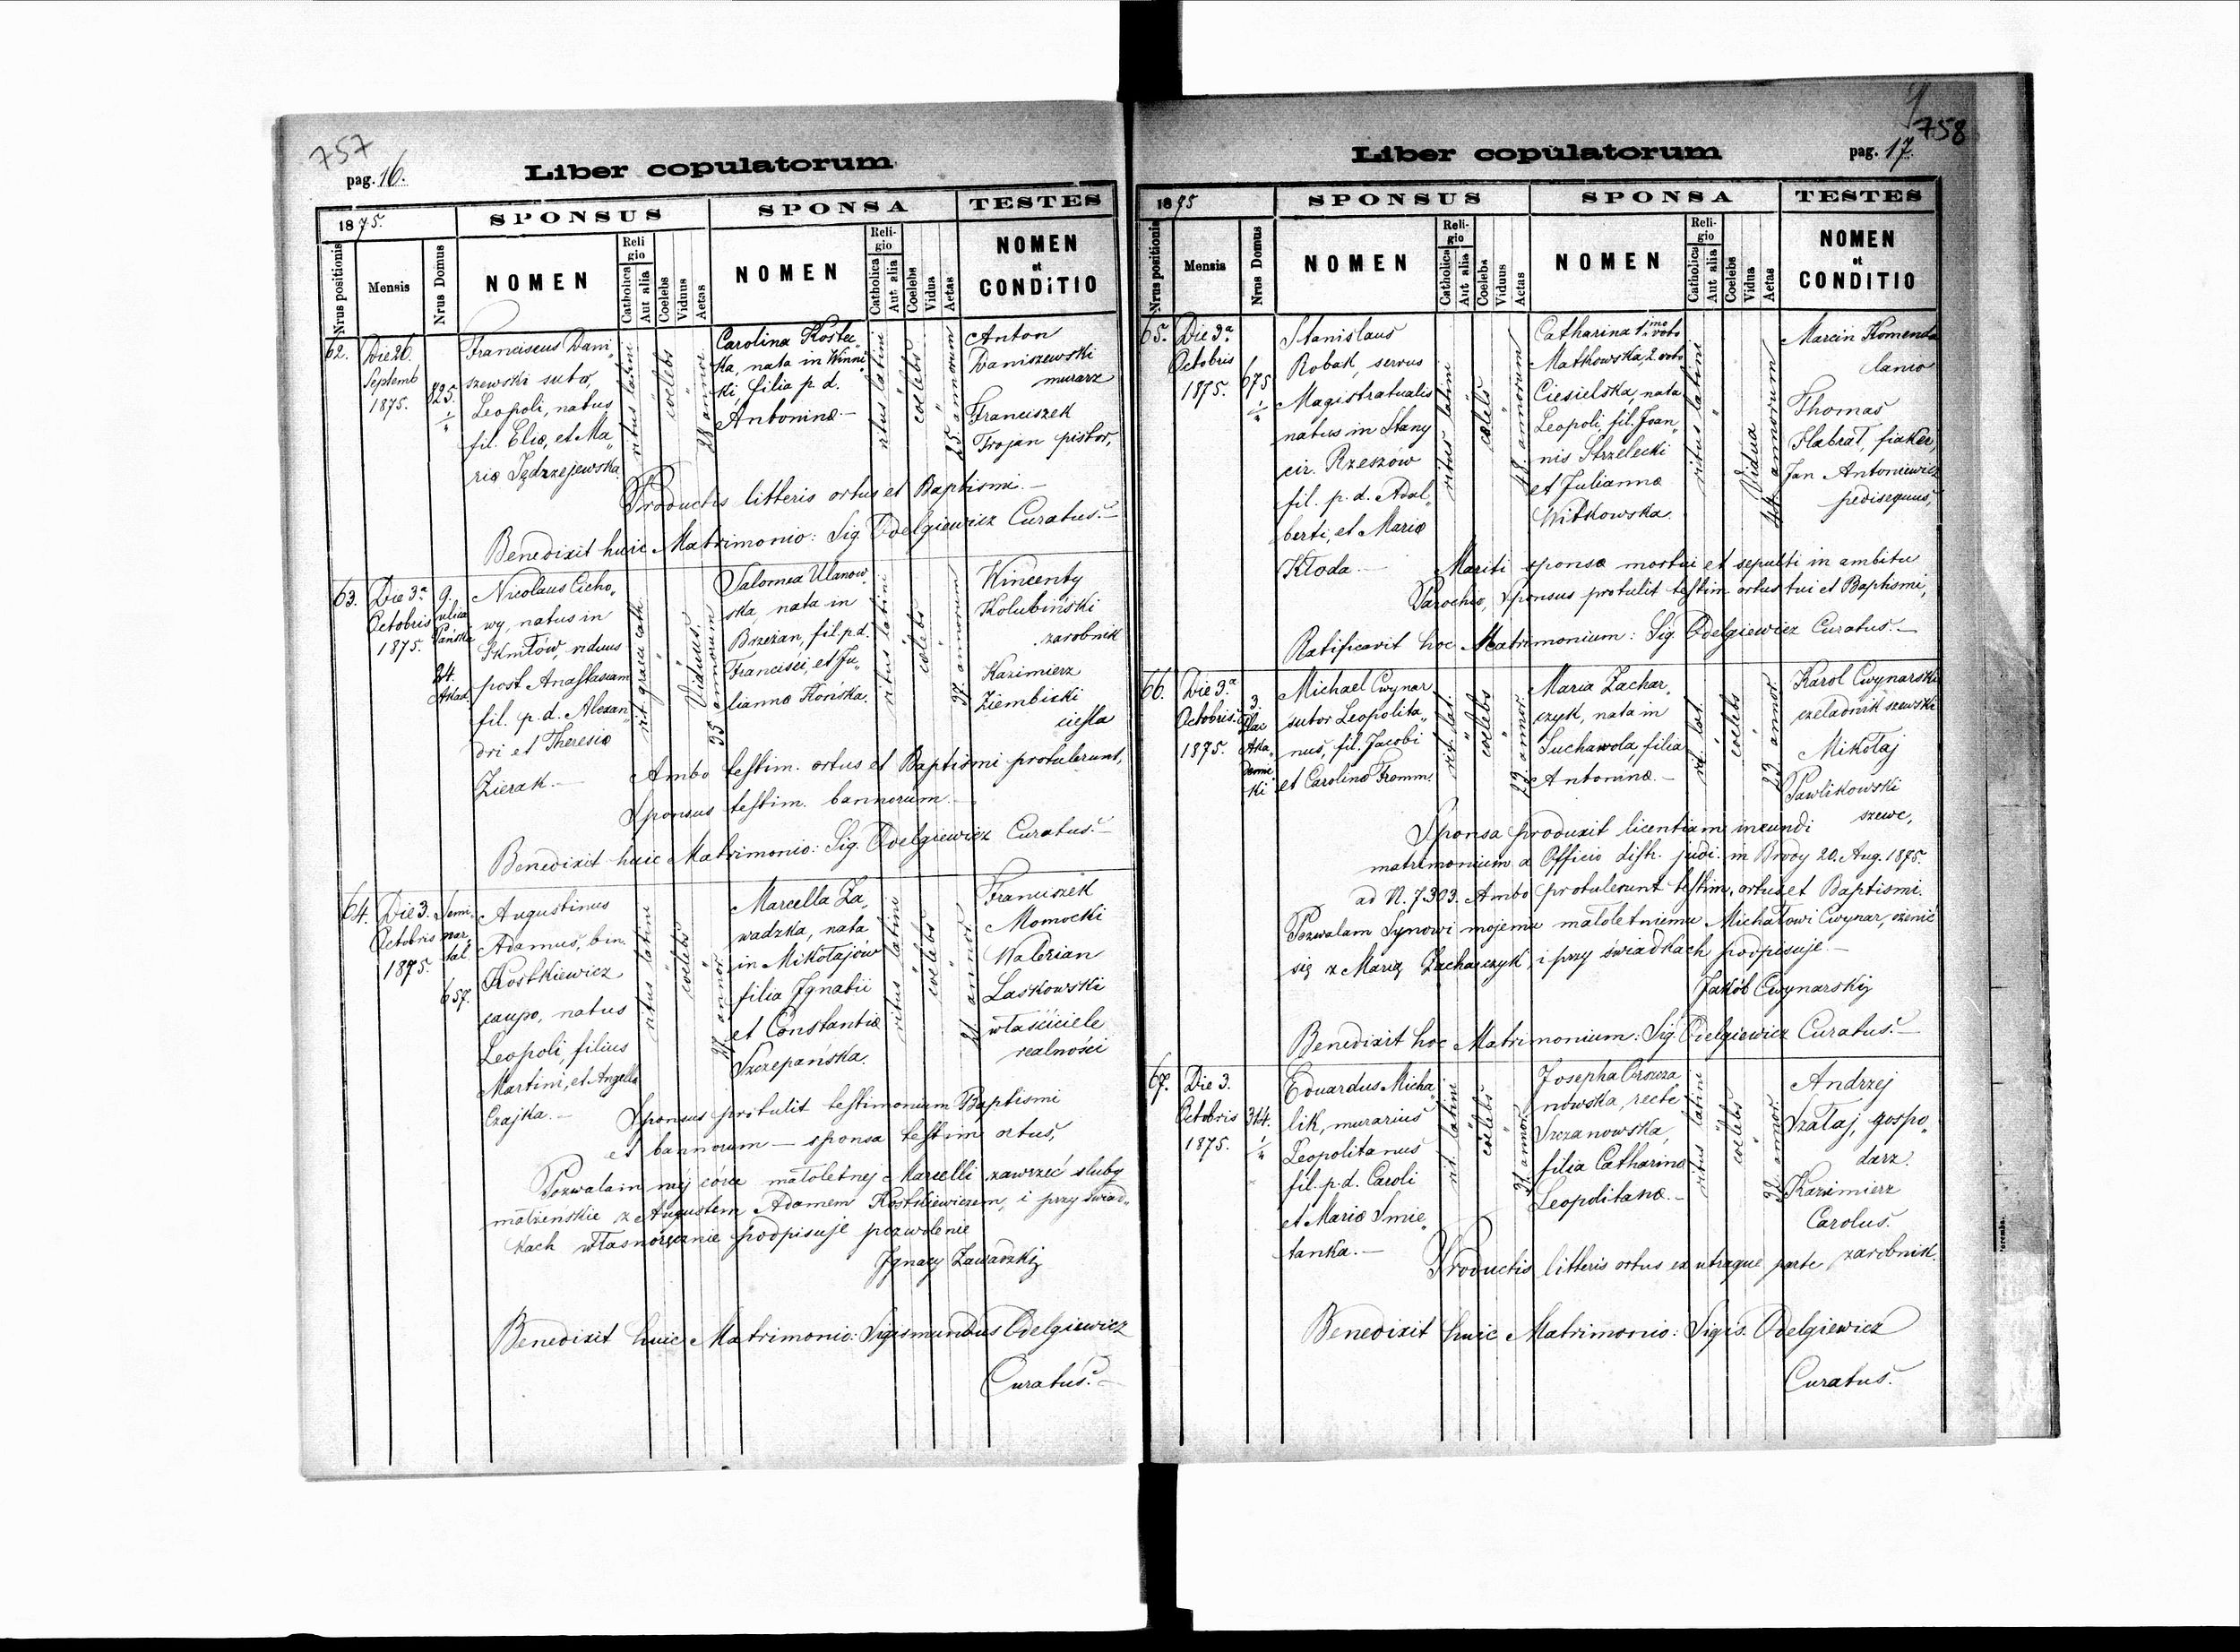 757
pag. 16.
Liber copulatorum
1875.
SPONSUS
SPONSA
TESTES
Nrus positionis
Mensis
Nrus Domus
NOMEN
Religio
Catholica
Aut alia
Coelebs
Viduus
Aetas
NOMEN
Religio
Catholica
Aut alia
Coelebs
Vidua
Aetas
NOMEN
et
CONDITIO
62.
Die 26.
Septemb
1875.
825.
Franciscus Dani„
szewski sutor,
Leopoli, natus
fil. Eliæ, et Ma„
riæ Jędrzejewska.
ritus latini
coelebs
28 annor
Carolina Kostec„
ka, nata in Winni
ki, filia p. d.
Antoninæ —
ritus latini
coelebs
25. annorum
Anton
Daniszewski
murarz
Franciszek
Trojan pistor,
Productis litteris ortus et Baptismi. —
Benedixit huic Matrimonio: Sig. Odelgiewicz Curatus. —
63.
Die 3ª
Octobris
1875.
9.
ulica
Pańska
24.
Akad.
Nicolaus Cicho„
wy, natus in
viduus
post Anastasiam
fil. p. d. Alexan„
dri et Theresiæ
Zierak. —
rit. græci cath.
Viduus.
35 annorum
Salomea Ulanow
ska, nata in
Brzeżan, fil. p.d.
Francisci, et Ju„
liannæ Końska.
ritus latini
coelebs
37. annorum
Wincenty
Kolubiński
zarobnik
Kazimierz
Ziembicki
cieśla
Ambo testim. ortus et Baptismi protulerunt,
Sponsus testim. bannorum. —
Benedixit huic Matrimonio: Sig. Odelgiewicz Curatus. —
64.
Die 3.
Octobris
1875.
Semi„
nar„
tal.
657.
Augustinus
Adamus, bin.
Kostkiewicz
caupo, natus
Leopoli, filius
Martini, et Angelæ
Czajka. —
ritus latini
coelebs
27 annor
Marcella Za„
wadzka, nata
in Mikołajów
filia Ignatii
et Constantiæ
Szczepańska.
ritus latini
coelebs
21 annor
Franciszek
Momocki
Walerian
Laskowski
właściciele
realności
Sponsus protulit testimonium Baptismi
et bannorum — sponsa testim ortus,
Pozwalam méj córce małoletnej Marcelli zawrzeć śluby
małżeńskie z Augustem Adamem Kostkiewiczem, i przy świad„
kach własnoręcznie podpisuje pozwolenie
Ignacy Zawadzki
Benedixit huic Matrimonio: Sigismundus Odelgiewicz
Curatus. —
758
pag. 17.
Liber copulatorum
1875
SPONSUS
SPONSA
TESTES
Nrus positionis
Mensis
Nrus Domus
NOMEN
Religio
Catholica
Aut alia
Coelebs
Viduus
Aetas
NOMEN
Religio
Catholica
Aut alia
Coelebs
Vidua
Aetas
NOMEN
et
CONDITIO
65.
Die 3ª
Octobris
1875.
675
Stanislaus
Robak, servus
Magistratualis
natus in Stany
cir. Rzeszów
fil. p. d. Adal„
berti, et Mariæ
Kłoda. —
ritus latini
coelebs
48. annorum
Catharina 1mo voto
Matkowska, 2 voto
Ciesielska, nata
Leopoli, fil. Joan„
nis Strzelecki
et Juliannæ
Witkowska.
ritus latini
Vidua
44 annorum
Marcin Komenda
lanio
Thomas
Habrat, fiaker,
Jan Antoniewicz
pedisequus,
Mariti sponsæ mortui et sepulti in ambitu
Parochiæ, sponsus protulit testim ortus sui et Baptismi,
Ratificavit hoc Matrimonium: Sig. Odelgiewicz Curatus. —
66.
Die 3ª
Octobris.
1875.
3.
Plac
Aka„
demic
ki
Michael Cwynar
sutor Leopolita„
nus, fil. Jacobi
et Carolinæ Fromm.
rit. lat.
coelebs
23 annor
Maria Zachar„
czyk, nata in
Suchawola, filia
Antoninæ. —
rit. lat.
coelebs
23 annor
Karol Cwynarski
czeladnik szewski
Mikołaj
Pawlikowski
szewc,
Sponsa produxit licentiam ineundi
matrimonium a Officio distr. judi. in Brody 20. Aug. 1875.
ad N. 7303. Ambo protulerunt testim. ortus et Baptismi.
Pozwalam Synowi mojemu małoletniemu Michałowi Cwynar, ożenić
się z Marią Zacharczyk, i przy świadkach podpisuje. —
Jakób Cwynarski
Benedixit hoc Matrimonium: Sig. Odelgiewicz Curatus. —
67.
Die 3.
Octobris
1875.
314.
Eduardus Micha„
lik, murarius
Leopolitanus
fil. p. d. Caroli
et Mariæ Smie„
tanka. —
rit. latini
coelebs
annor
Josepha
nowska, recte
Szczanowska,
filia Catharinæ
Leopolitanæ. —
ritus latini
coelebs
annor
Andrzej
Szałaj, gospo„
darz.
Kazimierz
Carolus.
zarobnik.
Productis litteris ortus ex utraque parte,
Benedixit huic Matrimonio: Sigis. Odelgiewicz
Curatus.